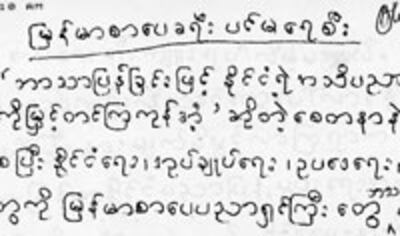 မြန်မာစာပေခရီး ပင်မရေစီး
ဘာသာပြန်ခြင်းဖြင့် နိုင်ငံ့ရဲ့ အသိပညာ
ကိုမြှင့်တင်ကြကုန်အံ့ ' ဆိုတဲ့ စေတနာနဲ့
စပြီး နိုင်ငံရေး၊ အုပ်ချုပ်ရေး ၊ ဥပဒေရေး
တွေကို မြန်မာစာပေပညာရှင်ကြီး တွေ